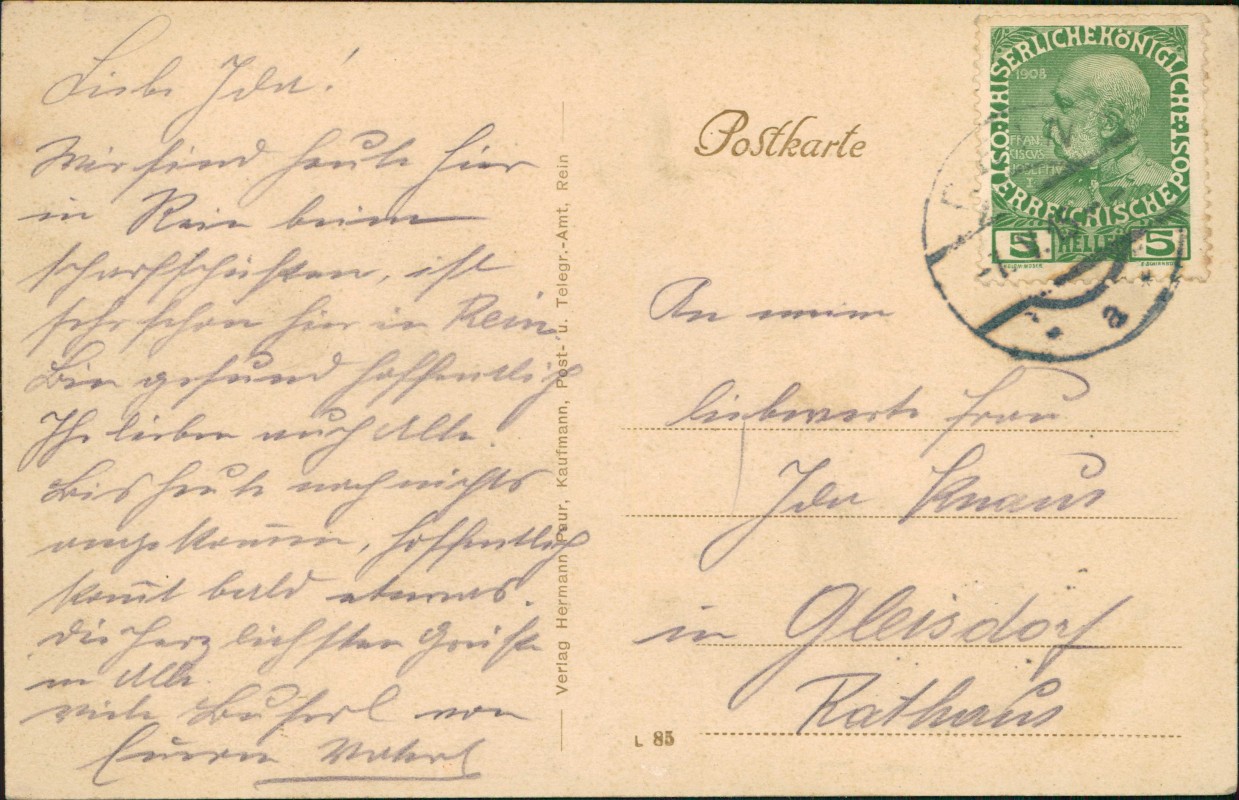 Liebe Ida!
Wir sind heute hier
in Rein beim
scharfschießen, ist
sehr schön hier in Rein
Bin gesund hoffentlich
Ihr lieben auch Alle.
Bis heute noch nichts
angekom̅en, hoffentlich
kom̅t bald etwas.
Die herzlichsten Grüße
an Alle.
viele Busserl von
Eurem Vaterl
Verlag Hermann Peur, Kaufmann, Post- u. Telegr.-Amt, Rein
Postkarte
KAISERLICHE KÖNIGLICHE ÖSTERREICHISCHE POST
1908
FRAN
CISCVS
5 HELLER 5
a
An meine
liebwerte Frau
Ida Knaus
in Gleisdorf
Rathaus
L 85